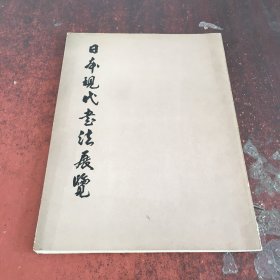 日本现代书法展覽